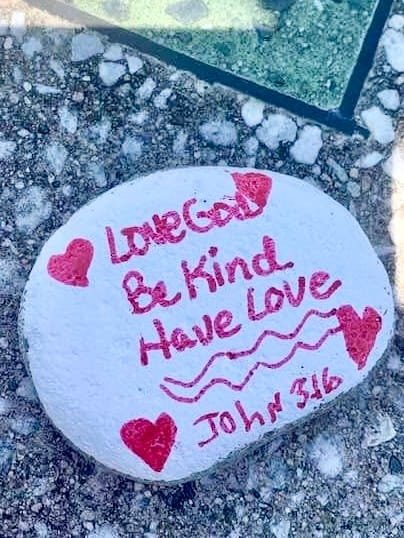 Love God
Be Kind
Have Love
John 3:16